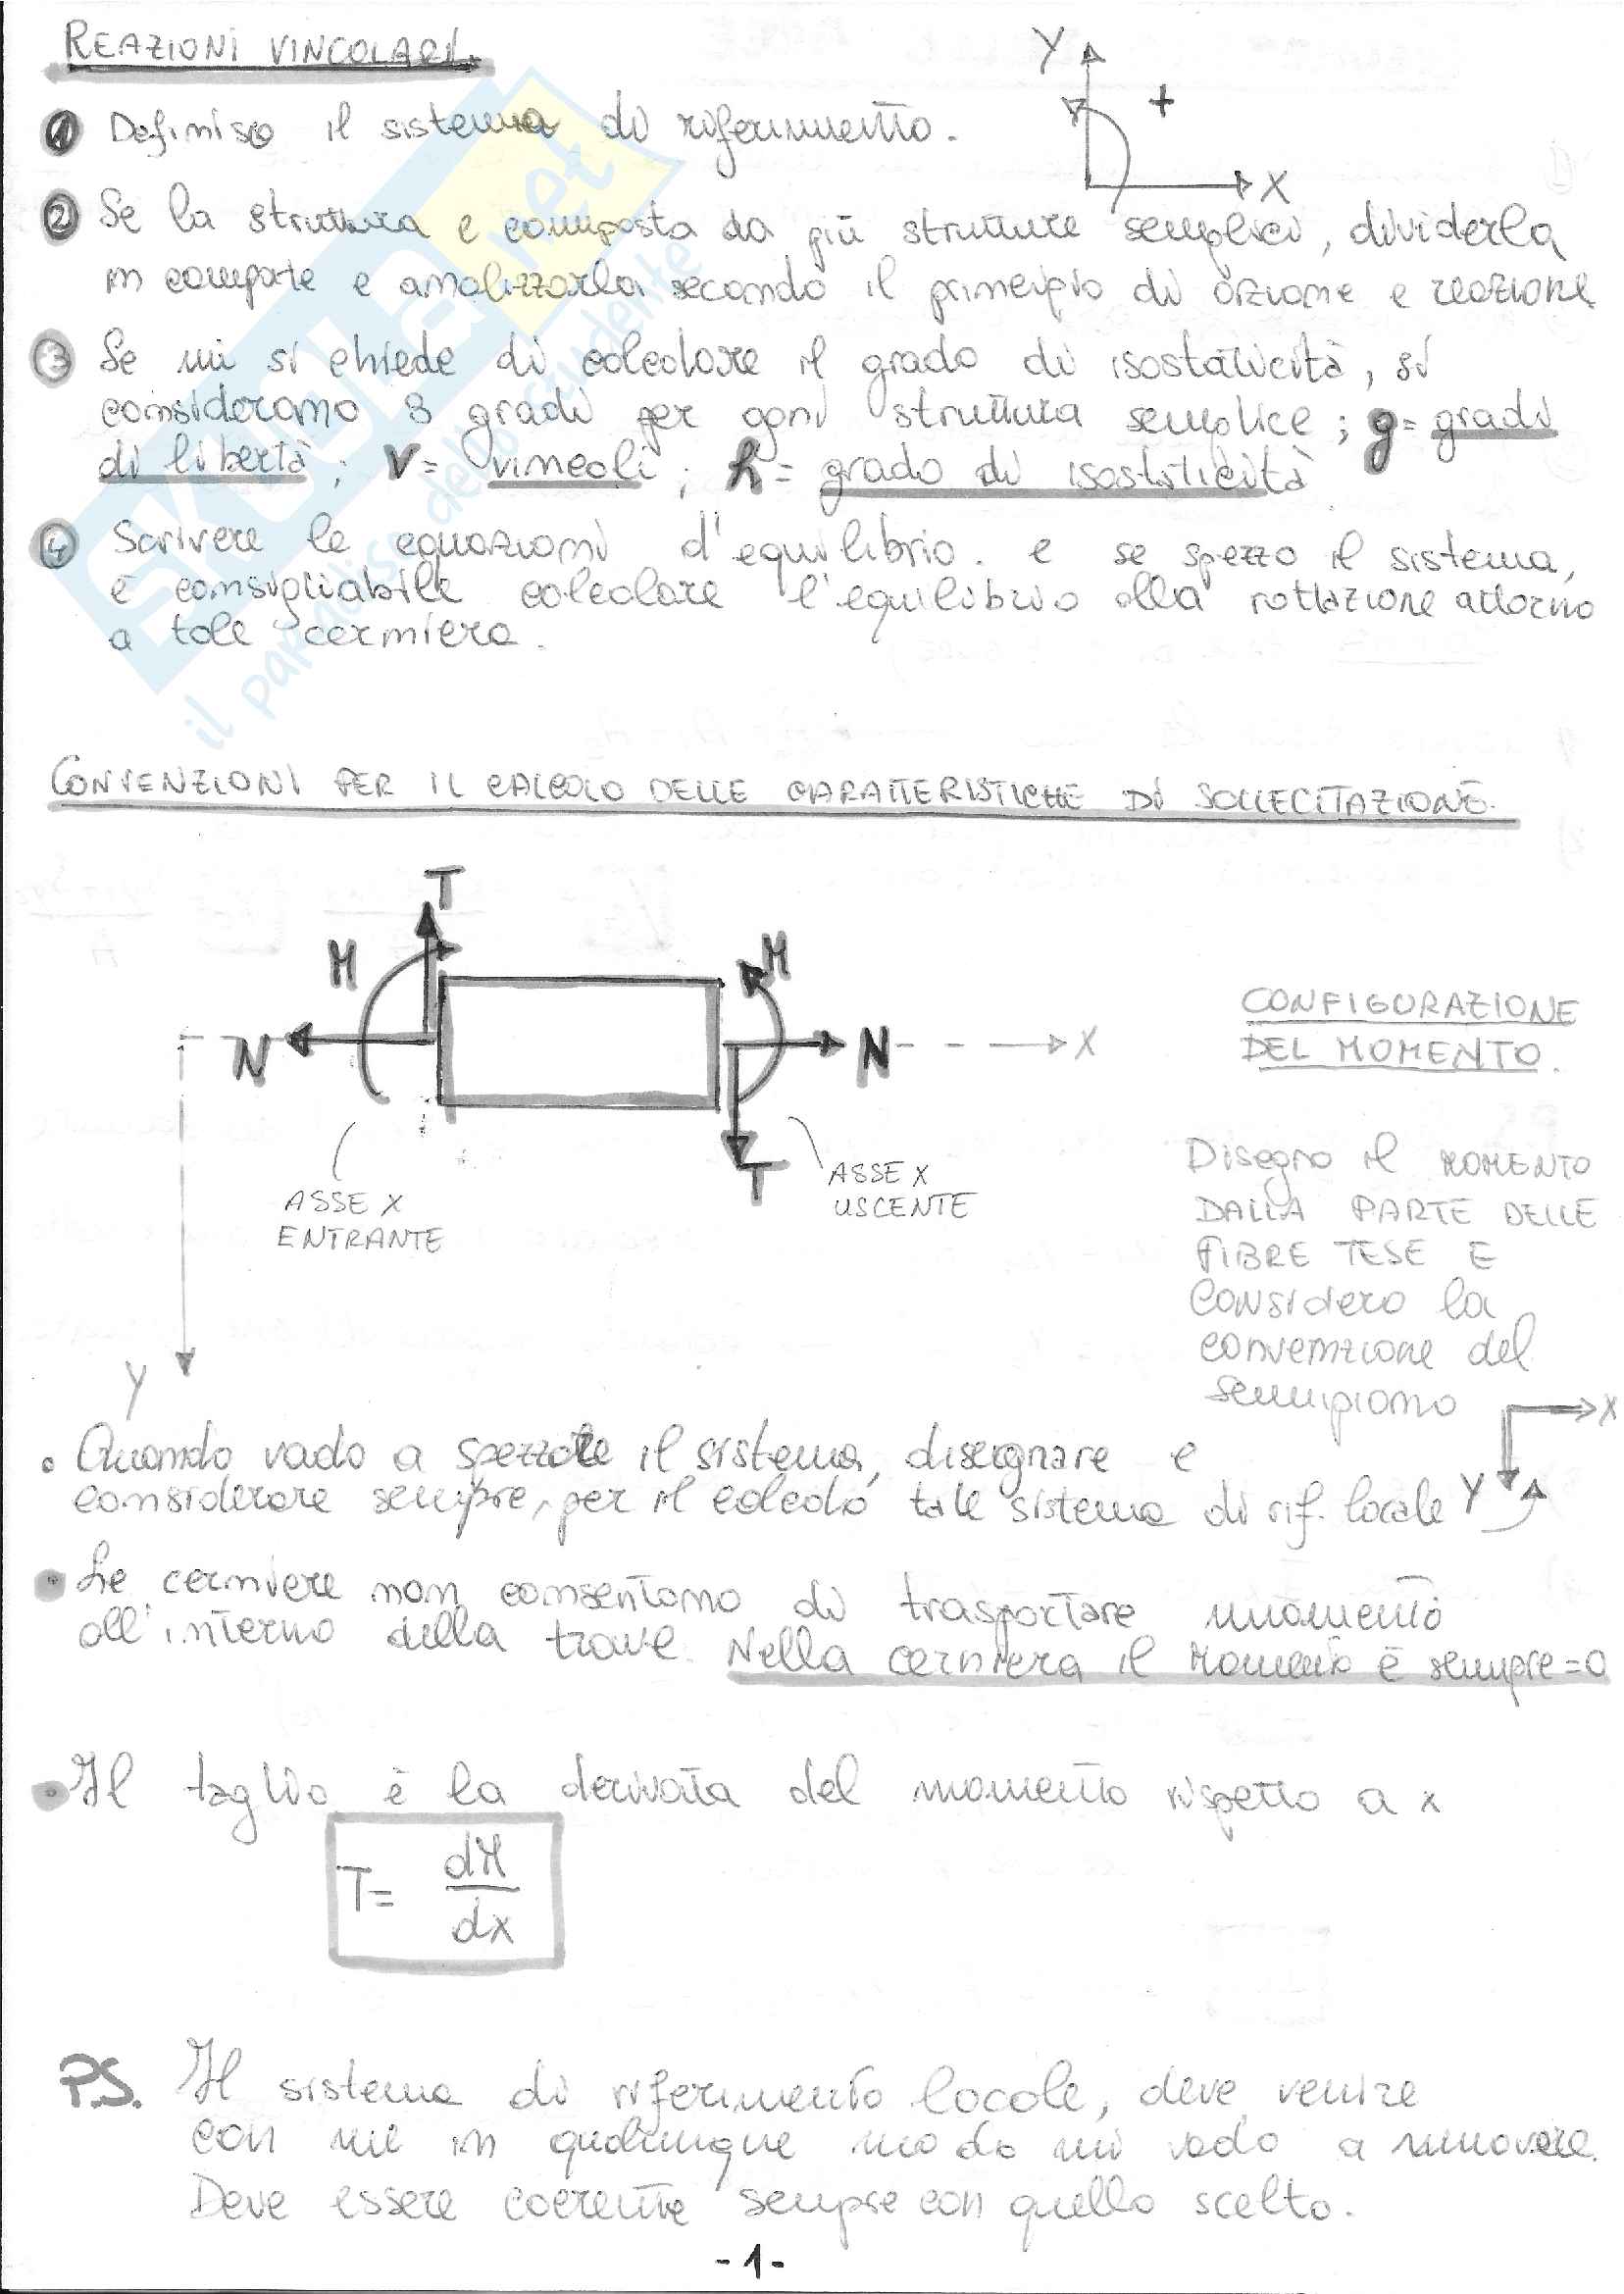 REAZIONI VINCOLARI.
Y
+
X
1 Definisco il sistema di riferimento.
2 Se la struttura e composta da più strutture semplici, dividerla
in comparte e analizzarla secondo il principio di azione e reazione
3 Se mi si chiede di calcolare il grado di isostaticità, si
consideramo 3 gradi per ogni struttura semplice; g= gradi
di libertà; V= vincoli; h= grado di isostaticità
4 Scrivere le equazioni d'equilibrio. e se spezzo il sistema,
è consigliabile calcolare l'equilibrio alla rottazione attorno
a tale cerniera.
SKUOLA.net
il paradiso dello studente
CONVENZIONI PER IL CALCOLO DELLE CARATTERISTICHE DI SOLLECITAZIONE.
T
M
M
N
N
X
T
ASSE X
ENTRANTE
ASSE X
USCENTE
Y
CONFIGURAZIONE
DEL MOMENTO.
Disegno il MOMENTO
DALLA PARTE DELLE
FIBRE TESE E
Considero la
convenzione del
semipiano
X
Y
• Quando vado a spezzare il sistema, disegnare e
considerare sempre, per il calcolo tale sistema di rif. locale
• Le cerniere non consentono di trasportare momento
all'interno della trave. Nella cerniera il Momento è sempre=0
• Il taglio è la derivata del momento rispetto a x
T= dM/dx
P.S. Il sistema di riferimento locale, deve venire
con me in qualunque modo mi vado a muovere.
Deve essere coerente sempre con quello scelto.
-1-